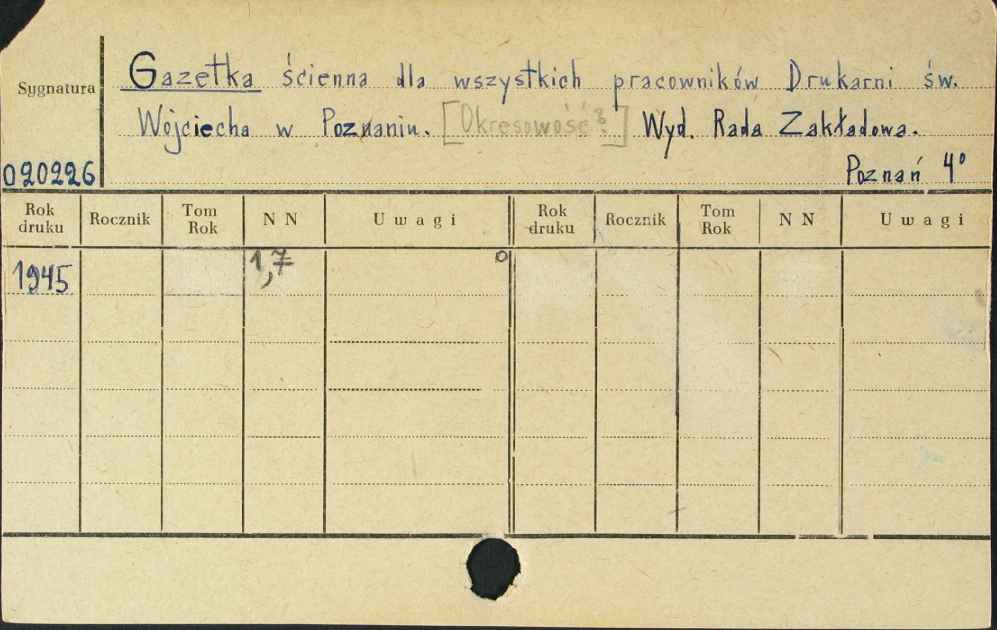 Gazetka ścienna dla wszystkich pracowników Drukarni św.
Sygnatura
Wojciecha w Poznaniu. [Okresowość?] Wyd. Rada Zakładowa.
020226
Poznań 4°
Rok druku Rocznik Tom Rok N N Uwagi Rok druku Rocznik Tom Rok N N Uwagi
1945 1,7 o